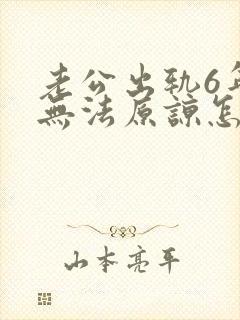 老公出軌6年
無法原諒怎
山本亮平